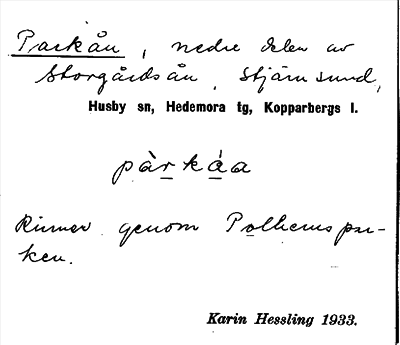 Parkån, nedre delen av
Storgårdsån, Stjärnsund,
Husby sn, Hedemora tg, Kopparbergs l.
pàrkáa
Rinner genom Polhemspar-
ken.
Karin Hessling 1933.